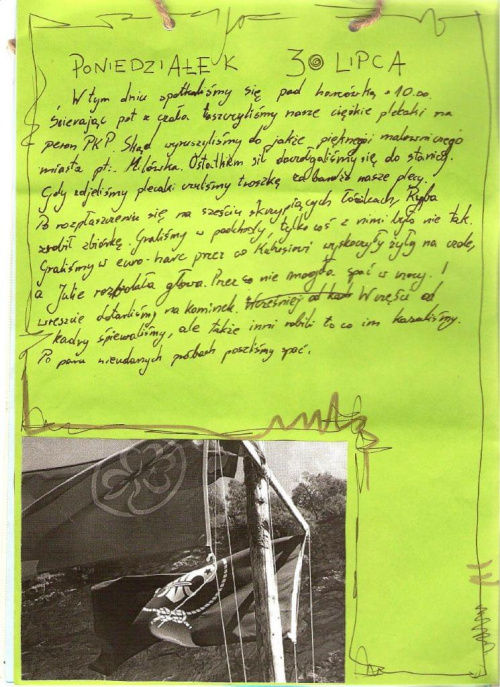 PONIEDZIAŁEK 30 LIPCA
W tym dniu spotkaliśmy się pod harcówką o 10.00.
Ścierając pot z czoła taszczyliśmy nasze ciężkie plecaki na
peron PKP. Skąd wyruszyliśmy do jakże pięknego i malowniczego
miasta pt.: Milówka. Ostatkiem sił doczołgaliśmy się do stanicy.
Gdy zdjeliśmy plecaki czuliśmy troszkę za bardzo nasze plecy.
Po rozpłaszczeniu się na sześciu skrzypiących łóżkach, Ryba
zrobił zbiórkę. Graliśmy w podchody, tylko coś z nimi było nie tak.
Graliśmy w euro-harc przez co wyskoczyły żyły na czole,
a Julię rozbolała głowa. Przez co nie mogła spać w nocy. I
wreszcie dotarliśmy na kominek. W części od
kadry śpiewaliśmy, ale także inni robili to co im kazaliśmy.
Po paru nieudanych próbach poszliśmy spać.